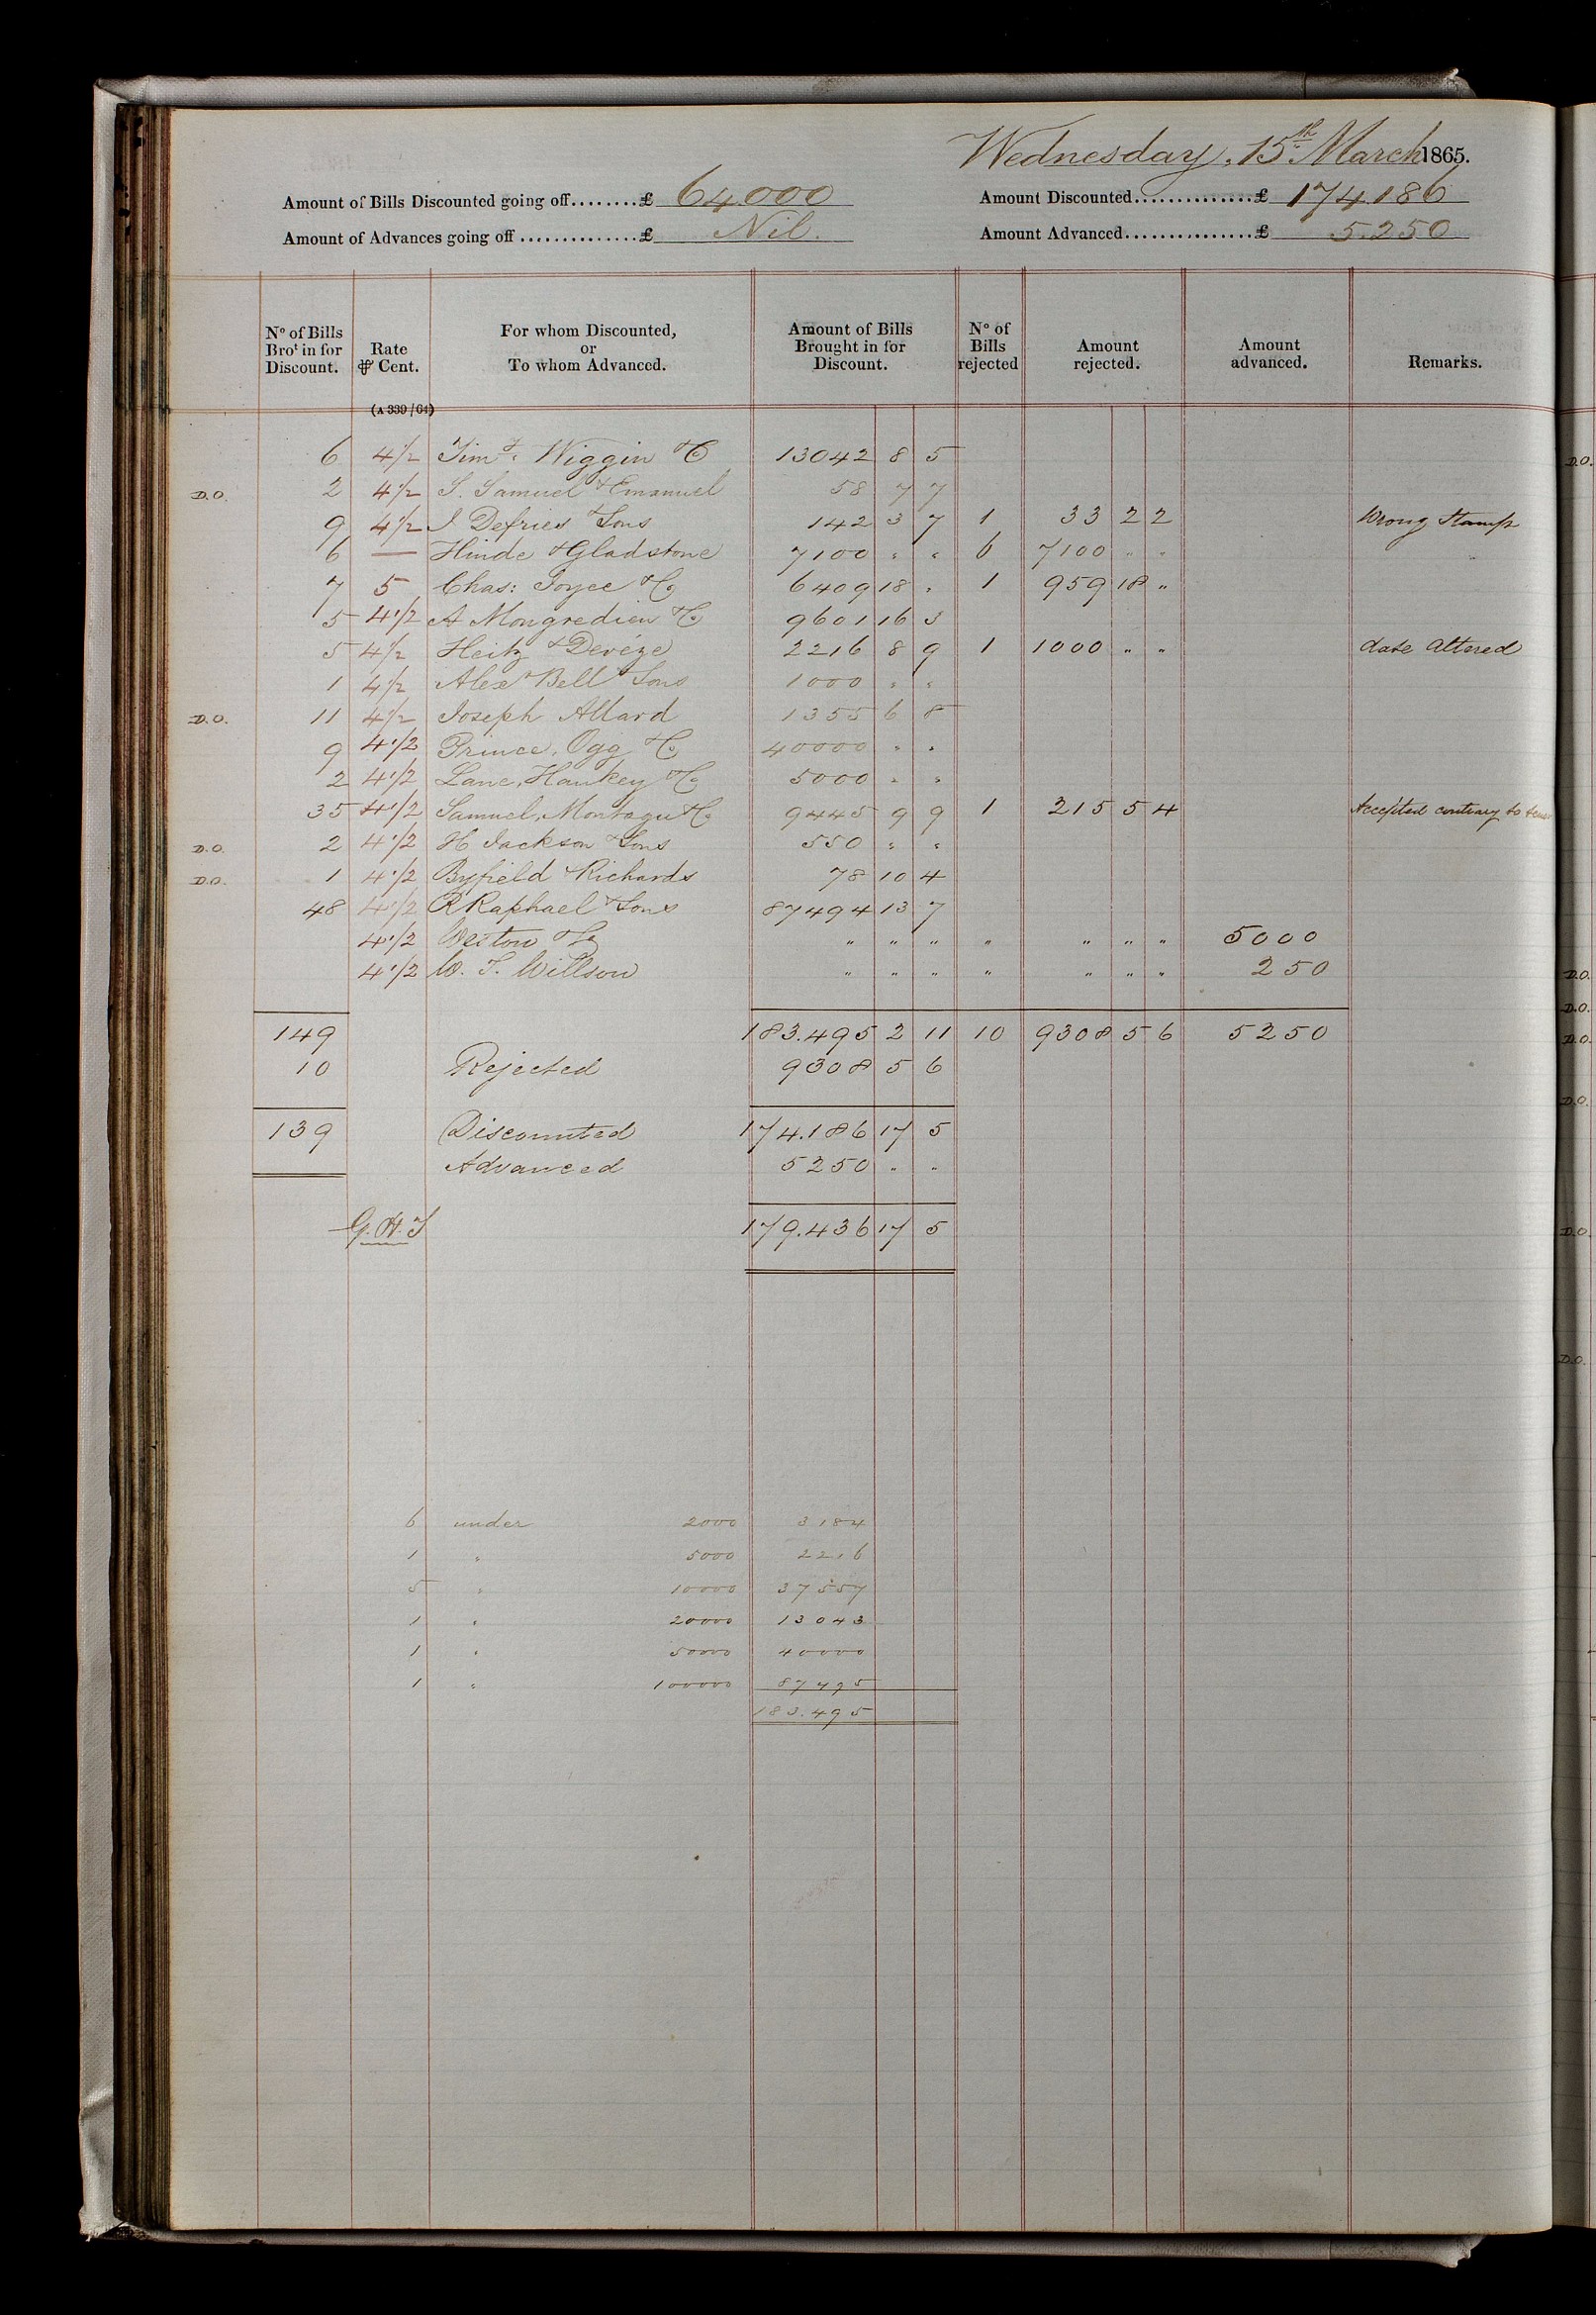 Wednesday, 15th March 1865.
Amount of Bills Discounted going off........£ 64.000 Amount Discounted...............£ 174.186
Amount of Advances going off ..............£ Nil. Amount Advanced................£ 5.250
No of Bills Brot in for Discount. Rate ⅌ Cent. For whom Discounted, or To whom Advanced. Amount of Bills Brought in for Discount. No of Bills rejected Amount rejected. Amount advanced. Remarks.
(A 339/64)
6 4½ Timy Wiggin & Co 13042 8 5
D.O. 2 4½ S. Samuel & Emanuel 58 7 7
9 4½ J Defries & Sons 142 3 7 1 33 2 2 Wrong Stamp
6 — Hinde & Gladstone 7100 " " 6 7100 " "
7 5 Chas: Joyce & Co 6409 18 " 1 959 18 "
5 4½ A Mongredien & Co 9601 16 3
5 4½ Heitz & Devéze 2216 8 9 1 1000 " " date Altered
1 4½ Alexr Bell & Sons 1000 " "
D.O. 11 4½ Joseph Allard 1355 6 8
9 4½ Prince, Ogg & Co 40000 " "
2 4½ Lane, Hankey & Co 5000 " "
35 4½ Samuel, Montagu & Co 9445 9 9 1 215 5 4 Accepted contrary to
D.O. 2 4½ H Jackson & Sons 550 " "
D.O. 1 4½ Byfield & Richards 78 10 4
48 4½ R Raphael & Sons 87494 13 7
4½ Weston & Co " " " " " " " 5000
4½ W. T. Willson " " " " " " " 250
149 183.495 2 11 10 9308 5 6 5250
10 Rejected 9308 5 6
139 Discounted 174.186 17 5
Advanced 5250 " "
G.H.T 179.436 17 5
6 under 2000 3184
1 " 5000 2216
5 " 10000 37557
1 " 20000 13043
1 " 50000 40000
1 " 100000 87495
183.495